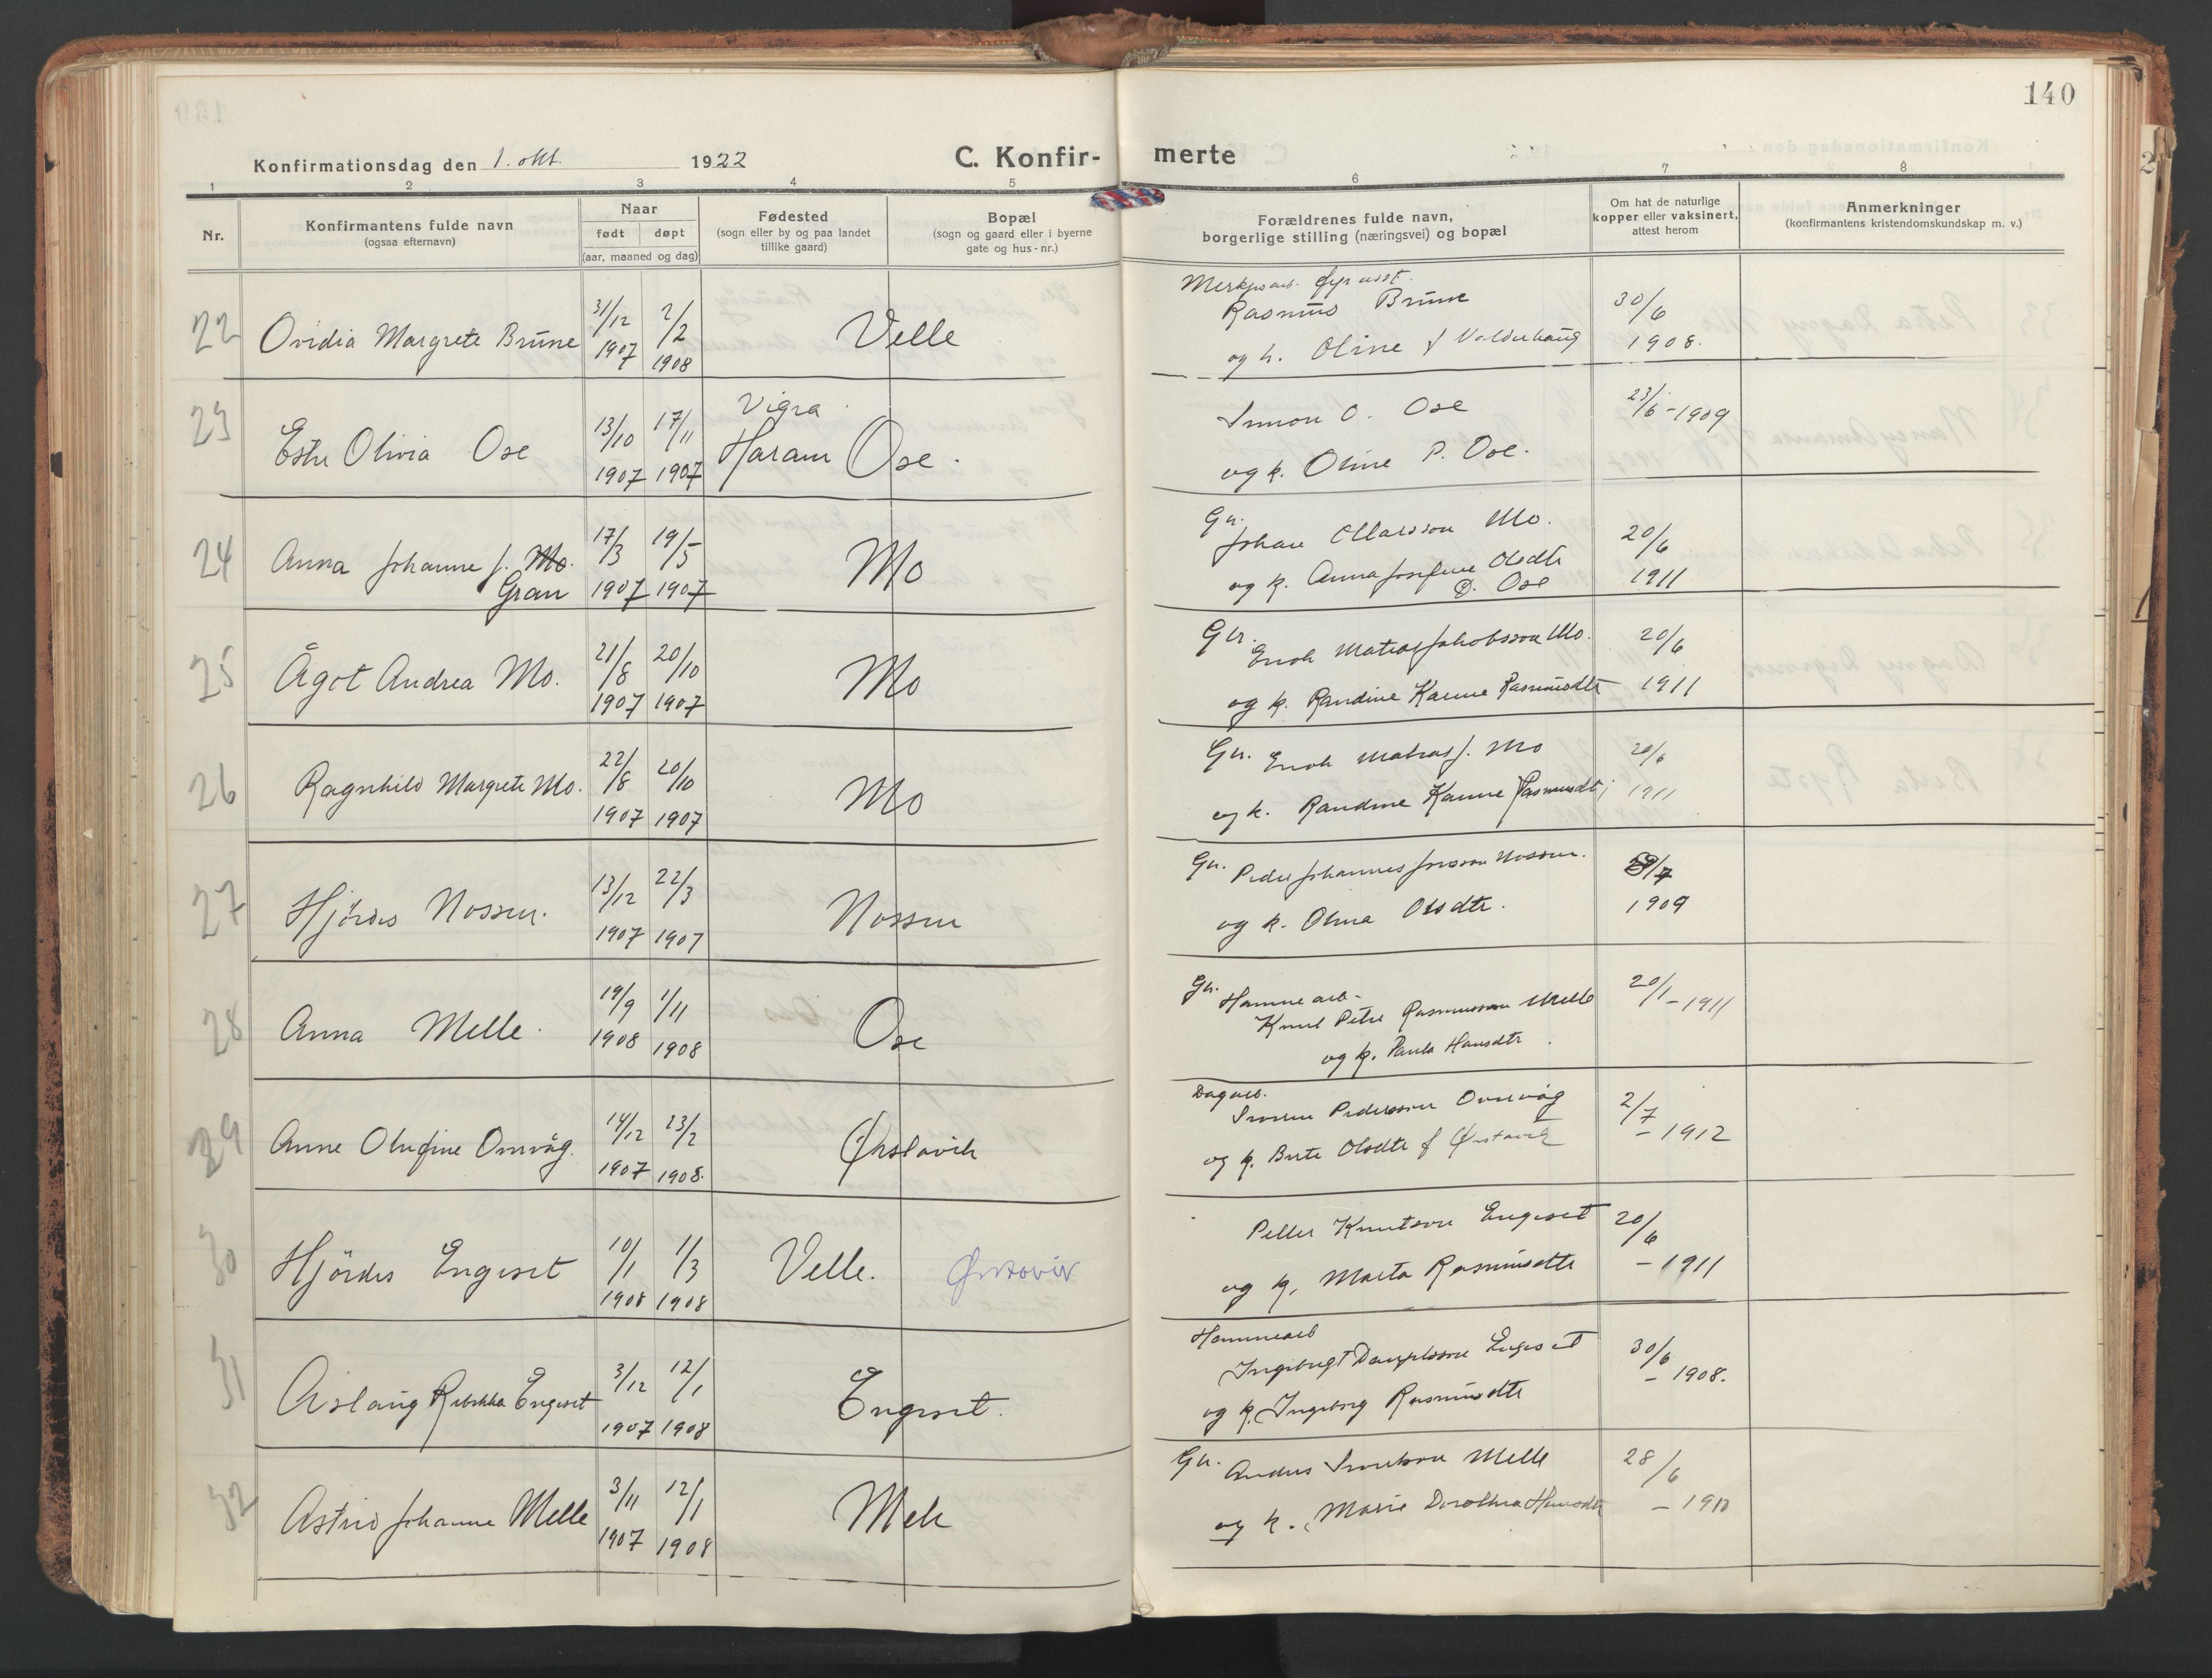 140
Konfirmationsdag den 1. okt. 1922
C. Konfir-
merte
1
2
3
4
5
6
7
8
Nr.
Konfirmantens fulde navn
(ogsaa efternavn)
Naar
født
døpt
(aar, maaned og dag)
Fødested
(sogn eller by og paa landet
tillike gaard)
Bopæl
(sogn og gaard eller i byerne
gate og hus-nr.)
Forældrenes fulde navn,
borgerlige stilling (næringsvei) og bopæl
Om hat de naturlige
kopper eller vaksinert,
attest herom
Anmerkninger
(konfirmantens kristendomskundskap m. v.)
22
Ovidia Margrete Brune
31/12 2/2
1907 1908
Velle
Rasmus Brune
og h. Oline f Valderhaug
30/6
1908.
23
Ester Olivia Ose
13/10 17/11
1907 1907
Vigra
Haram
Ose.
Simon O. Ose
og k. Oline P. Ose.
23/6-1909
24
Anna Johanne J. Mo.
Gran
17/3 19/5
1907 1907
Mo
Gr.
Johan Olarsson Mo.
og k. Anna Josefine Olsdtr
D. Ose
20/6
1911
25
Ågot Andrea Mo.
21/8 20/10
1907 1907
Mo
Gr.
Enok Matias Jakobsson Mo.
og k. Randine Karine Rasmusdtr
20/6
1911
26
Ragnhild Margrete Mo.
22/8 20/10
1907 1907
Mo
Gr. Enok Matias J. Mo
og k. Randine Karine Rasmusdtr
20/6
1911
27
Hjördis Nossen.
13/12 22/3
1907 1907
Nossen
Gr. Peder Johannes Jonsson Nossen.
og k. Olina Olsdtr.
/7
1909
28
Anna Melle.
19/9 1/11
1908 1908
Ose
Gr. Hamnearb.
Knut Peter Rasmusson Melle
og k. Paula Hansdtr.
20/1-1911
29
Anne Olufine Omvåg.
14/12 23/2
1907 1908.
Ørstavik
Dagarb.
Pedersson Omvåg
og k. Berte Olsdtr f Ørstavik
2/7
- 1912
30
Hjördis Engeset
10/1 1/3
1908 1908
Velle.
Ørstavik
Petter Knutson Engeset
og k. Marta Rasmusdtr
20/6
- 1911
31
Aslaug Rebekka Engeset
3/12 12/1
1907 1908
Engeset.
Hamnearb
Ingebrigt Danielsson Engeset
og k. Ingeborg Rasmusdtr
30/6
- 1908.
32
Astrid Johanne Melle
3/11 12/1
1907 1908
Mele
Gr. Anders Melle
og k. Marie Dorothea Hansdtr
28/6